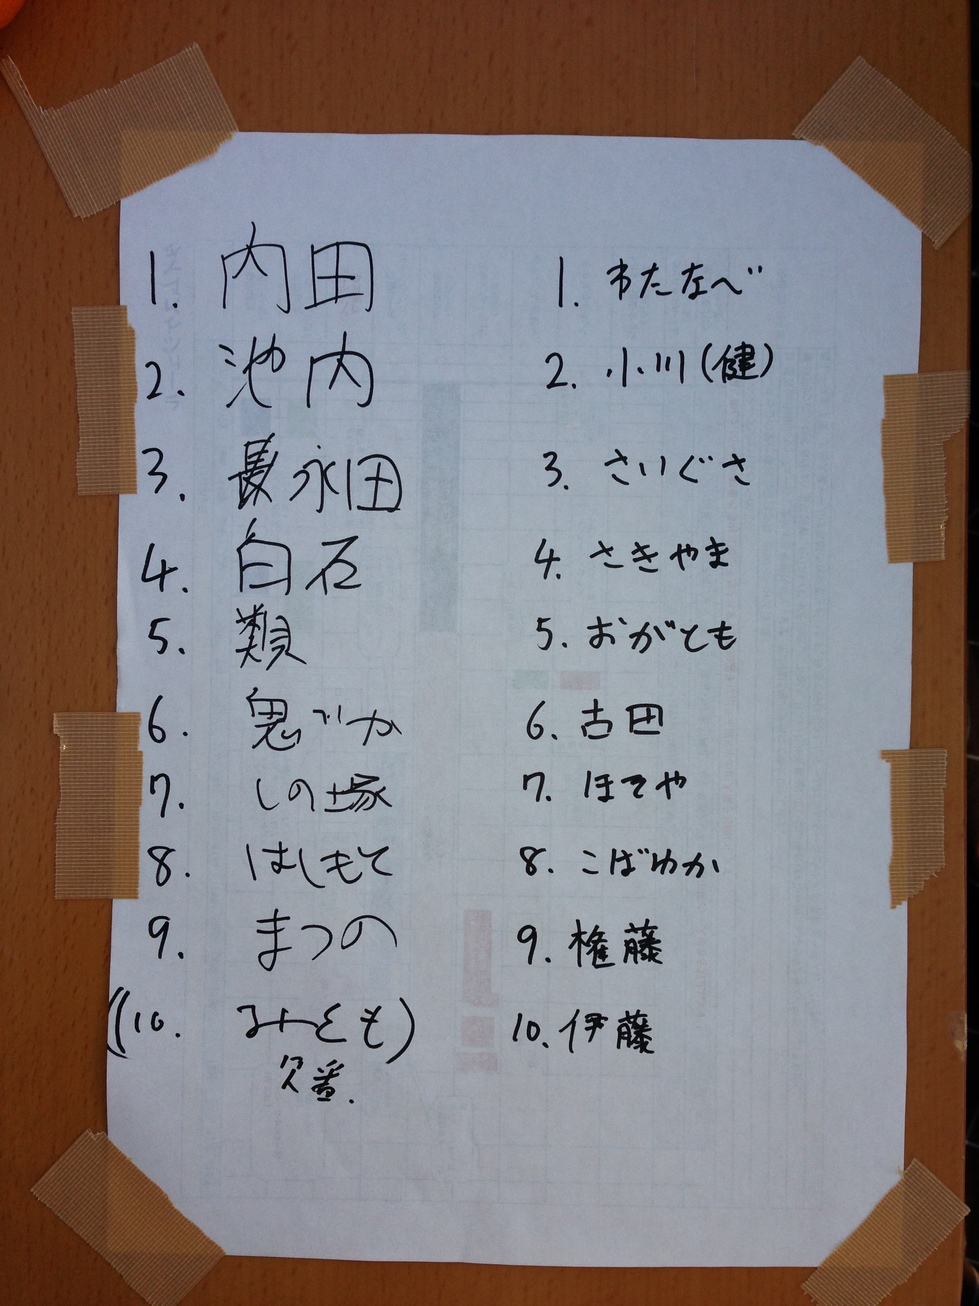 1. 内田
2. 池内
3. 長永田
4. 白石
5. 類
6. 鬼づか
7. しの塚
8. はしもと
9. まつの
(10. みとも)
欠番.
1. わたなべ
2. 小川(健)
3. さいぐさ
4. さきやま
5. おがとも
6. 古田
7. ほそや
8. こばゆか
9. 権藤
10. 伊藤